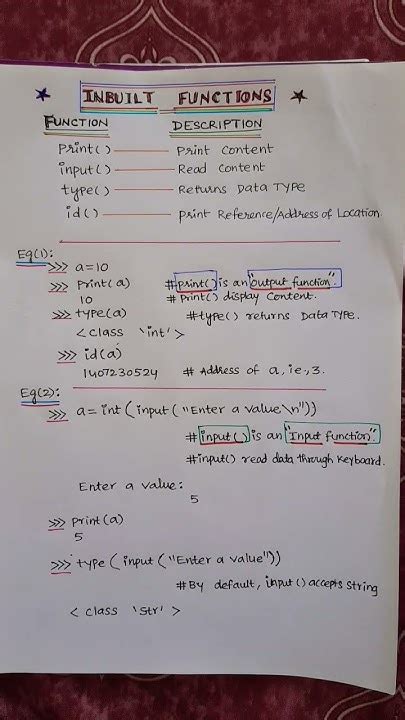 INBUILT FUNCTIONS
FUNCTION DESCRIPTION
Print() Print Content
input() Read Content
type() Returns Data TYPE
id() Print Reference/Address of Location
Eg(1):
>>> a=10
>>> Print(a) #print() is an "output function".
10 # Print() display Content.
>>> type(a) #type() returns Data TYPE.
< class 'int' >
>>> id(a)
1407230524 # Address of a, ie., 3.
Eg(2):
>>> a= int (input ("Enter a value\n"))
# input() is an "Input function".
#input() read data through Keyboard.
Enter a value:
5
>>> Print(a)
5
>>> type (input ("Enter a value"))
#By default, input() accepts String
< class 'str' >